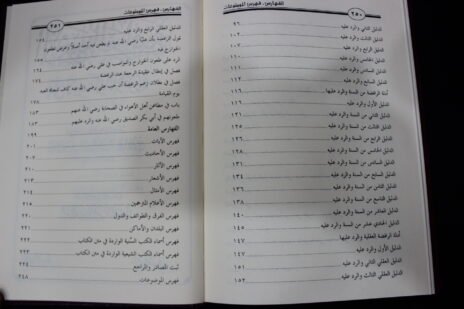 ٢٥٠ الفهارس. فهرس الموضوعات
الدليل الثاني والرد عليه ٩٦
الدليل الثالث والرد عليه ١٠٢
الدليل الرابع والرد عليه
الدليل الخامس والرد عليه
الدليل السادس والرد عليه
الدليل السابع والرد عليه
أدلة الرافضة من السنة والرد عليها ١١٦
الدليل الأول والرد عليه ١١٦
الدليل الثاني من السنة والرد عليه
الدليل الثالث من السنة والرد عليه
الدليل الرابع من السنة والرد عليه
الدليل الخامس من السنة والرد عليه ١٣١
الدليل السادس من السنة والرد عليه ١٣٤
الدليل السابع من السنة والرد عليه ١٣٦
الدليل الثامن من السنة والرد عليه
الدليل التاسع من السنة والرد عليه ١٣٨
الدليل العاشر من السنة والرد عليه ١٤٠
الدليل الحادي عشر من السنة والرد عليه ١٤٥
أدلة الرافضة العقلية والرد عليها ١٤٧
الدليل الأول والرد عليه ١٤٧
الدليل العقلي الثاني والرد عليه ١٥١
الدليل العقلي الثالث والرد عليه ١٥٢
الفهارس. فهرس الموضوعات ٢٥١
الدليل العقلي الرابع والرد عليه ١٥٤
قول الرافضة بأن عليًا رضي الله عنه لم يطعن فيه أحد أصلاً وعرض لطعون
الخوارج فيه
الرد على طعون الخوارج والنواصب في علي رضي الله عنه
فصل في إبطال عقيدة الرجعة عند الرافضة ١٧٤
فصل في بطلان زعم الرافضة أن حب علي رضي الله عنه كاف لنجاة العبد
يوم القيامة ١٧٨
باب في مطاعن أهل الأهواء في الصحابة رضي الله عنهم ١٨٣
مطعونهم في أبي بكر الصديق رضي الله عنه والرد عليهم ١٨٣
الفهارس العامة ١٩٩
فهرس الآيات ٢٠١
فهرس الأحاديث ٢٠٥
فهرس الآثار ٢١٠
فهرس الأشعار ٢١٣
فهرس الأمثال ٢١٤
فهرس الأعلام المترجمين ٢١٥
فهرس الفرق والطوائف والدول ٢١٨
فهرس البلدان والأماكن ٢٢١
فهرس أسماء الكتب السنية الواردة في متن الكتاب ٢٢٢
فهرس أسماء الكتب الشيعية الواردة في متن الكتاب ٢٢٤
ثبت المصادر والمراجع
فهرس الموضوعات ٢٤٨